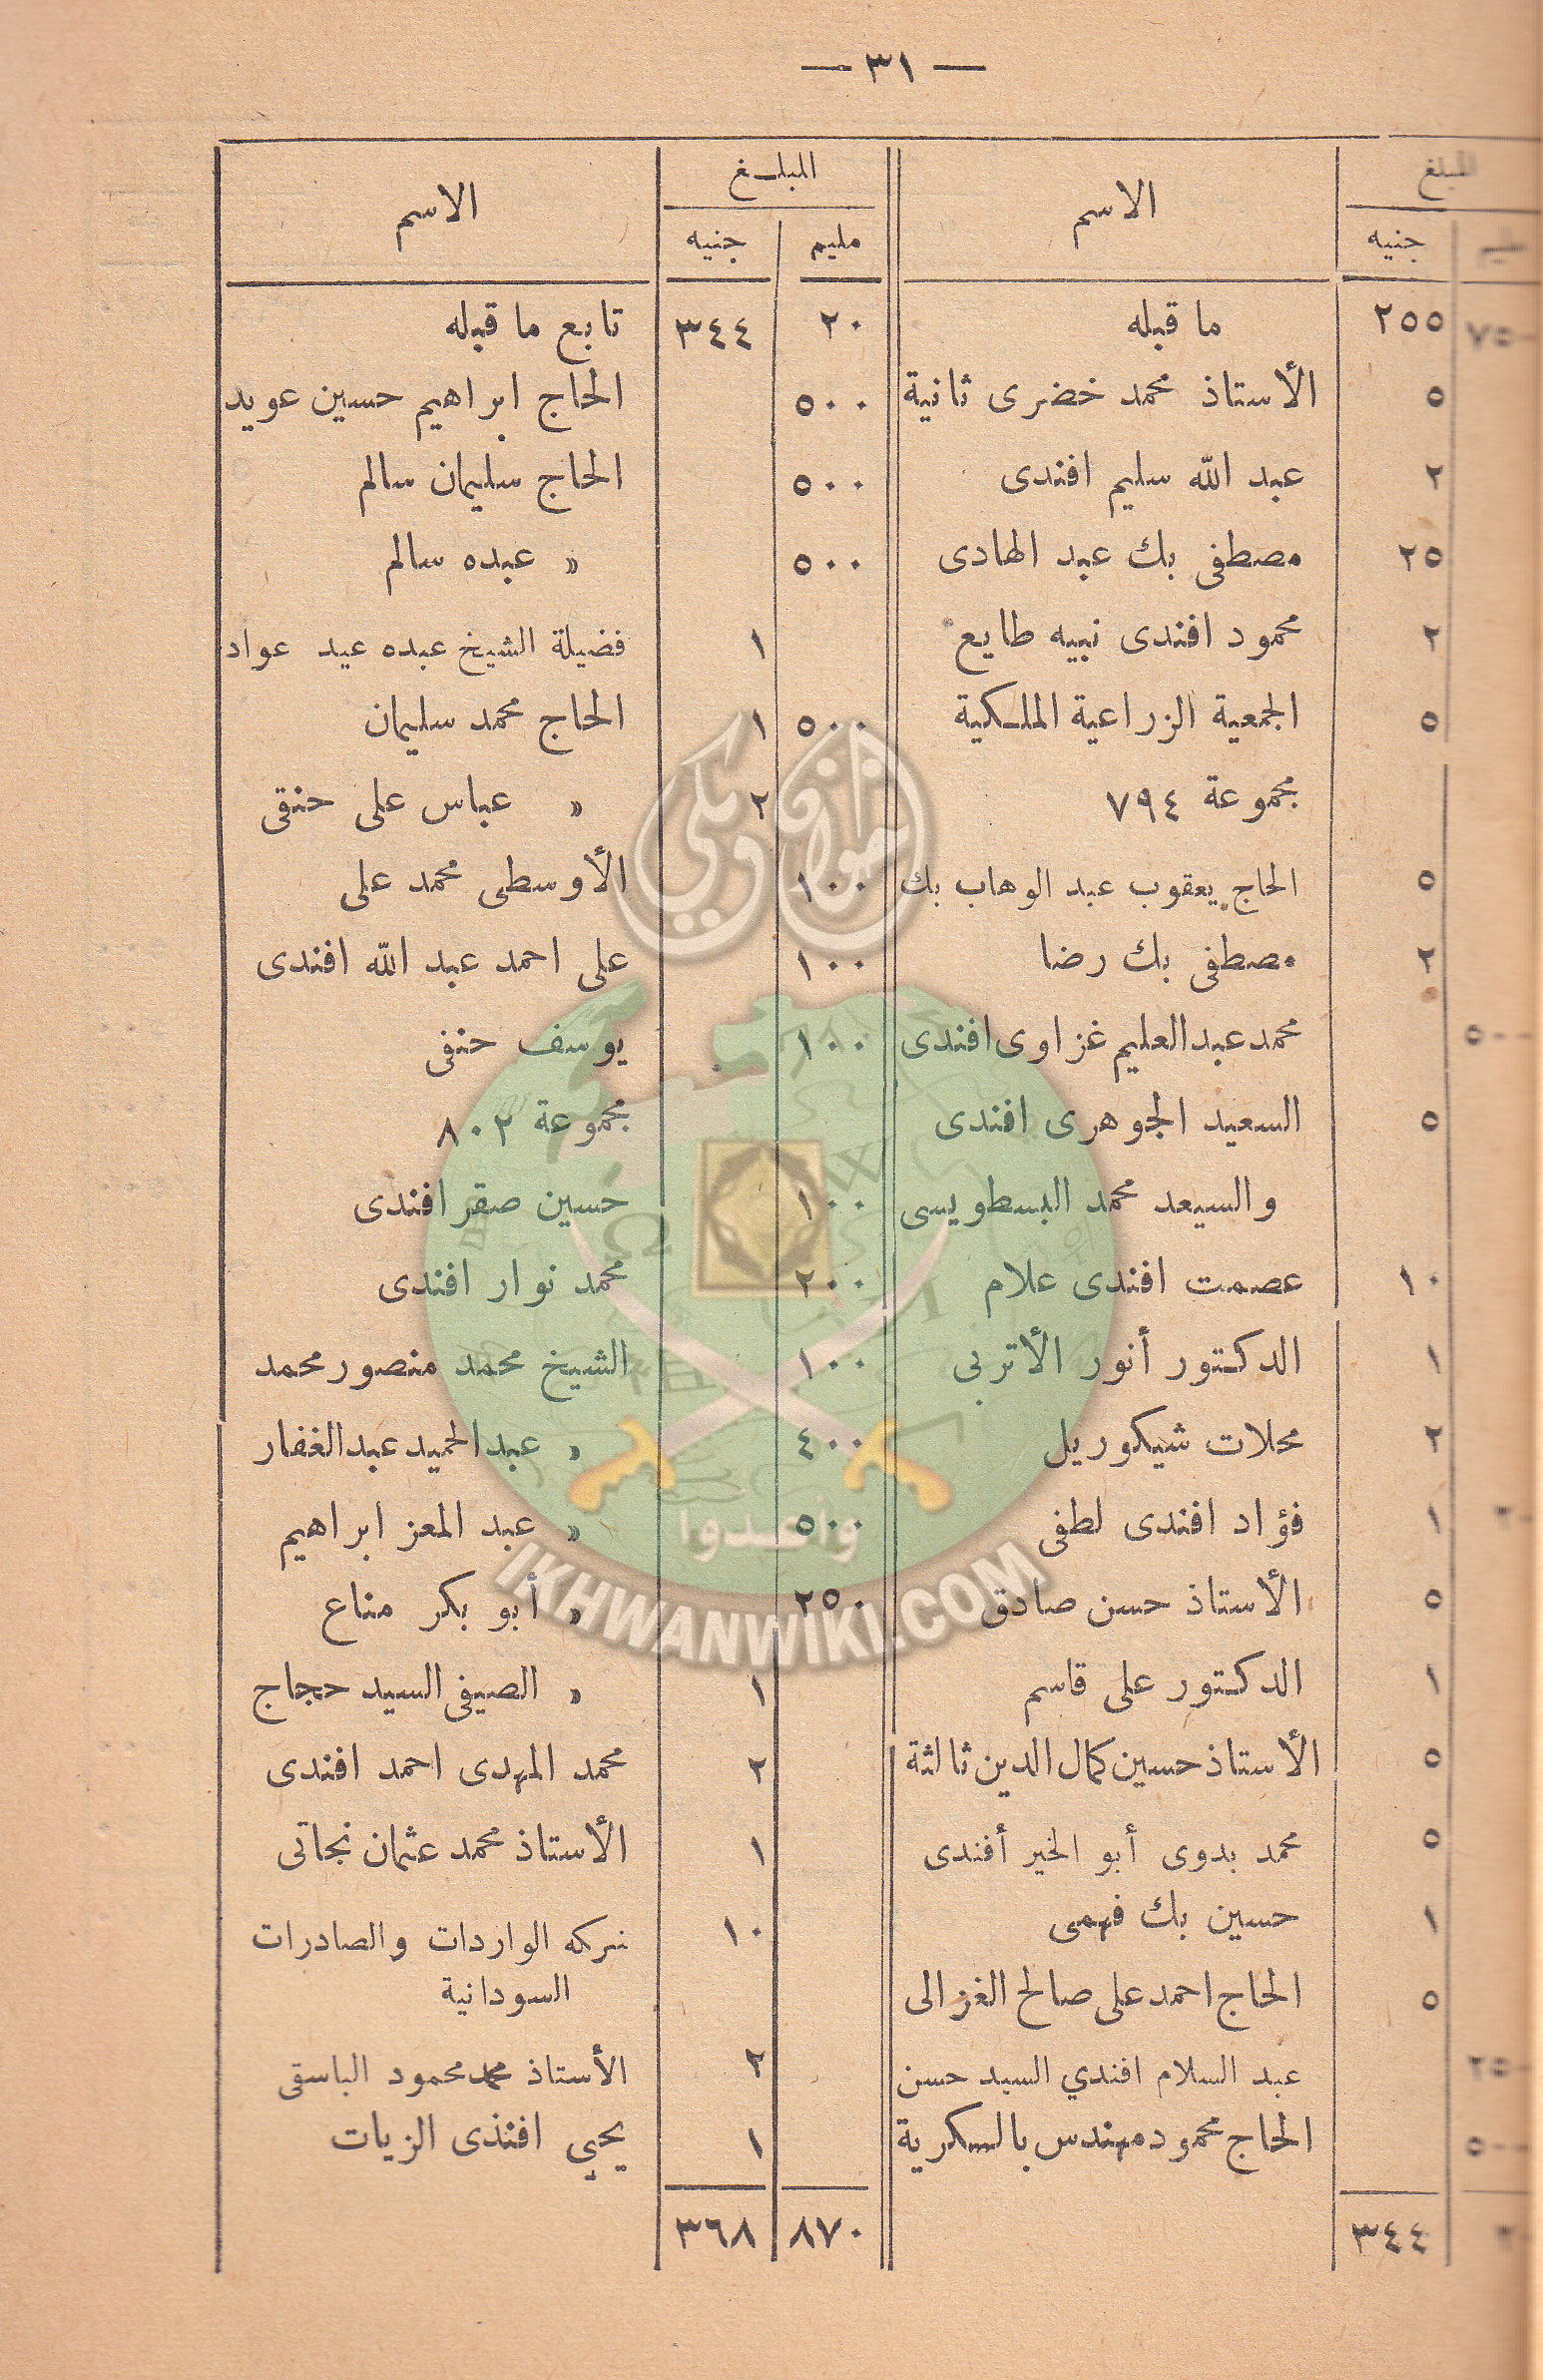 — ٣١ —
المبلغ الاسم المبلغ الاسم
جنيه مليم جنيه
٢٥٥ ما قبله ٢٠ ٣٤٤ تابع ما قبله
٥ الأستاذ محمد خضرى ثانية ٥٠٠ الحاج ابراهيم حسين عويد
٢ عبد الله سليم افندى ٥٠٠ الحاج سليمان سالم
٢٥ مصطفى بك عبد الهادى ٥٠٠ » عبده سالم
٢ محمود افندى نبيه طايع ١ فضيلة الشيخ عبده عيد عواد
٥ الجمعية الزراعية الملكية ٥٠٠ ١ الحاج محمد سليمان
مجموعة ٧٩٤ ٢ » عباس على حنقى
٥ الحاج يعقوب عبد الوهاب بك ١٠٠ الأوسطى محمد على
٢ مصطفى بك رضا ١٠٠ على احمد عبد الله افندى
٥٠٠ محمد عبد العليم غزاوى افندى ١٠٠ يوسف حنفى
٥ السعيد الجوهرى افندى مجموعة ٨٠٢
والسيعد محمد البسطويسى ١٠٠ حسين صقر افندى
١٠ عصمت افندى علام ٢٠٠ محمد نوار افندى
١ الدكتور أنور الأتربى ١٠٠ الشيخ محمد منصور محمد
٢ محلات شيكوريل ٤٠٠ » عبد الحميد عبد الغفار
١ فؤاد افندى لطفى ٥٠٠ » عبد المعز ابراهيم
٥ الأستاذ حسن صادق ٢٥٠ » أبو بكر مناع
١ الدكتور على قاسم ١ » الصيفى السيد حجاج
٥ الأستاذ حسين كمال الدين ثالثة ٢ محمد المهدى احمد افندى
٥ محمد بدوى أبو الخير أفندى ١ الأستاذ محمد عثمان نجاتى
١ حسين بك فهمى ١٠ شركه الواردات والصادرات
السودانية
٥ الحاج احمد على صالح الغزالى
٢٥٠ عبد السلام افندي السيد حسن ٢ الأستاذ محمد محمود الباسقى
٥٠٠ الحاج محمود مهندس بالسكرية ١ يحيي افنذى الزيات
٣٤٤ ٨٧٠ ٣٦٨
إخوان ويكي
وأعدوا
IKHWANWIKI.COM